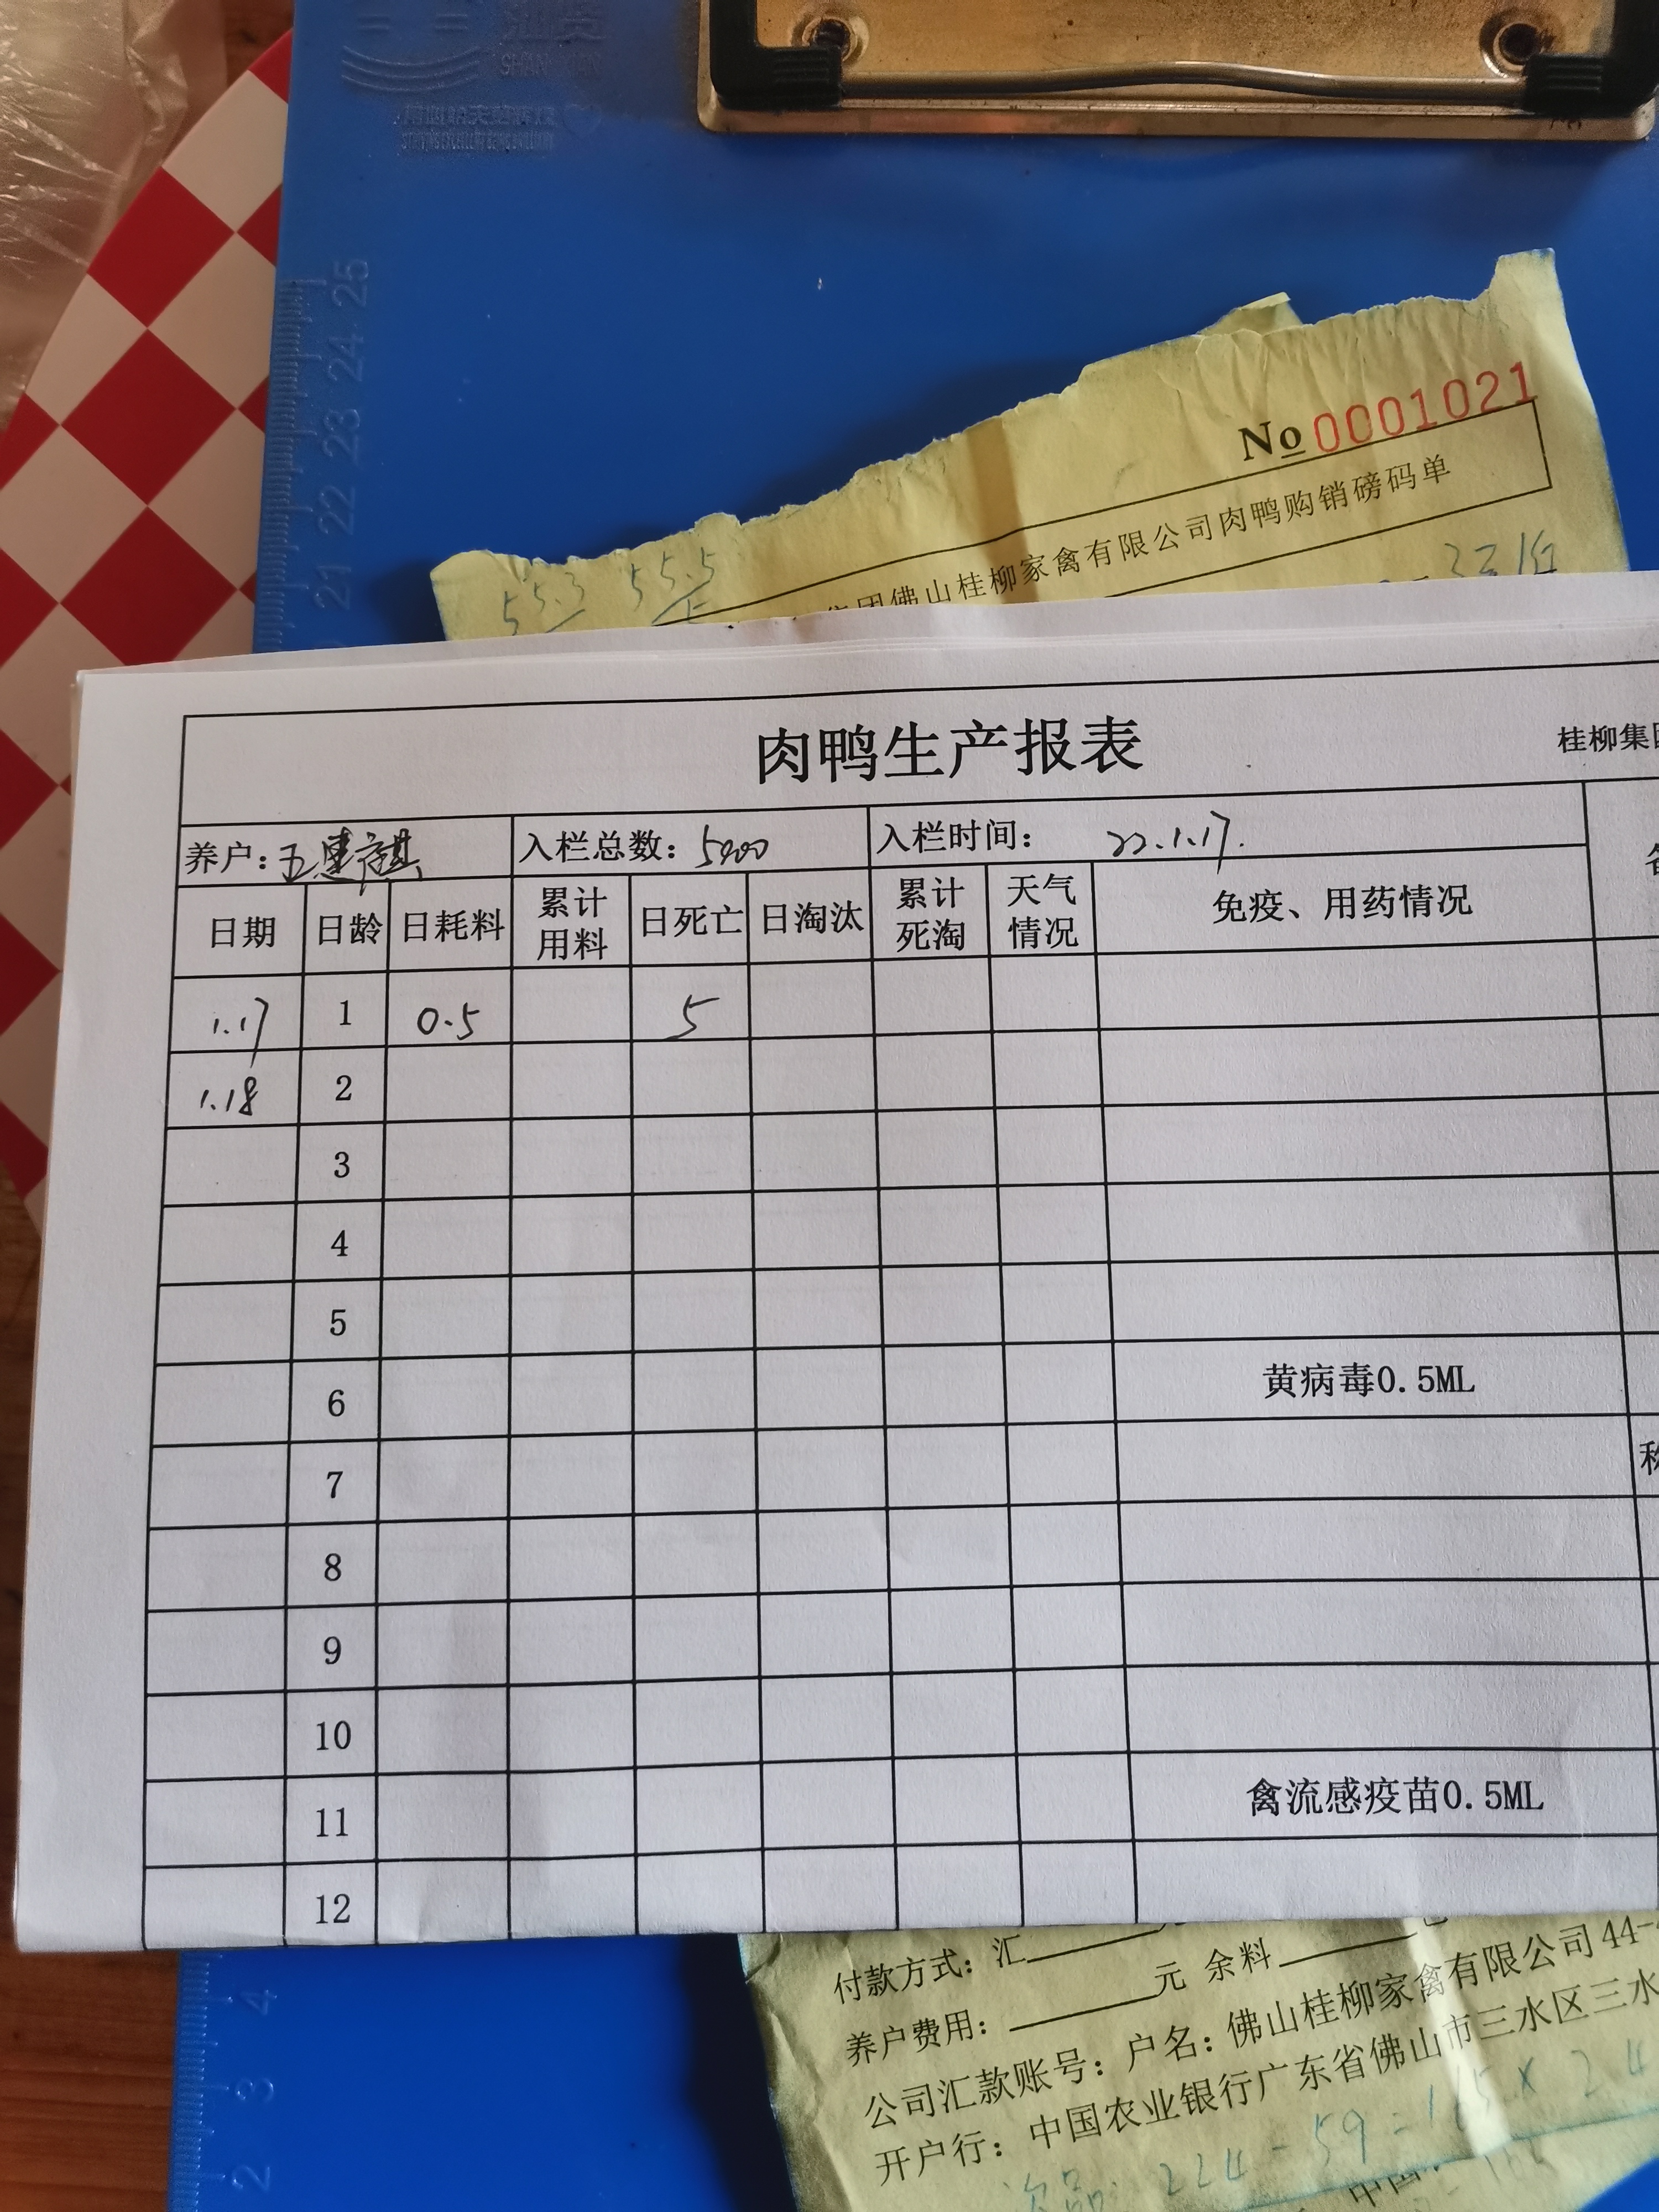 25
24
23
22
21
No 0001021
集团佛山桂柳家禽有限公司肉鸭购销磅码单
55.3 55.5
肉鸭生产报表
桂柳集团
养户： 入栏总数：5000 入栏时间：22.1.17.
日期 日龄 日耗料 累计用料 日死亡 日淘汰 累计死淘 天气情况 免疫、用药情况
1.17 1 0.5 5
1.18 2
3
4
5
6 黄病毒0.5ML
7
8
9
10
11 禽流感疫苗0.5ML
12
付款方式：汇 元 余料
养户费用：
公司汇款账号：户名：佛山桂柳家禽有限公司 44-
开户行：中国农业银行广东省佛山市三水区三水
次品： 224-59=165×24
4
3
2